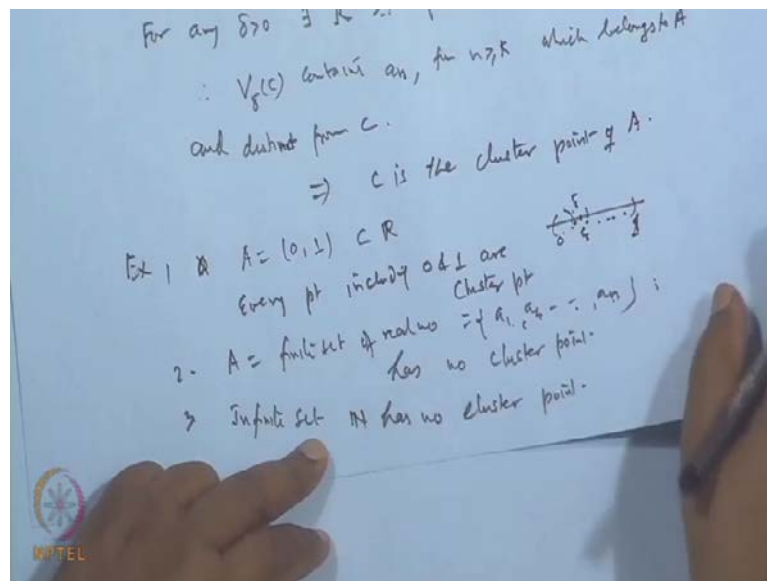 For any δ>0 ∃
∴ V_δ(c) contains an, for n≥k which belongs to A
and distinct from c.
⇒ c is the cluster point of A.
Ex 1 A = (0,1) ⊂ R
Every pt including 0 & 1 are
cluster pt
2. A = finite set of real no = { a1, a2, - - , an } ;
has no cluster point.
3 Infinite set IN has no cluster point.
NPTEL